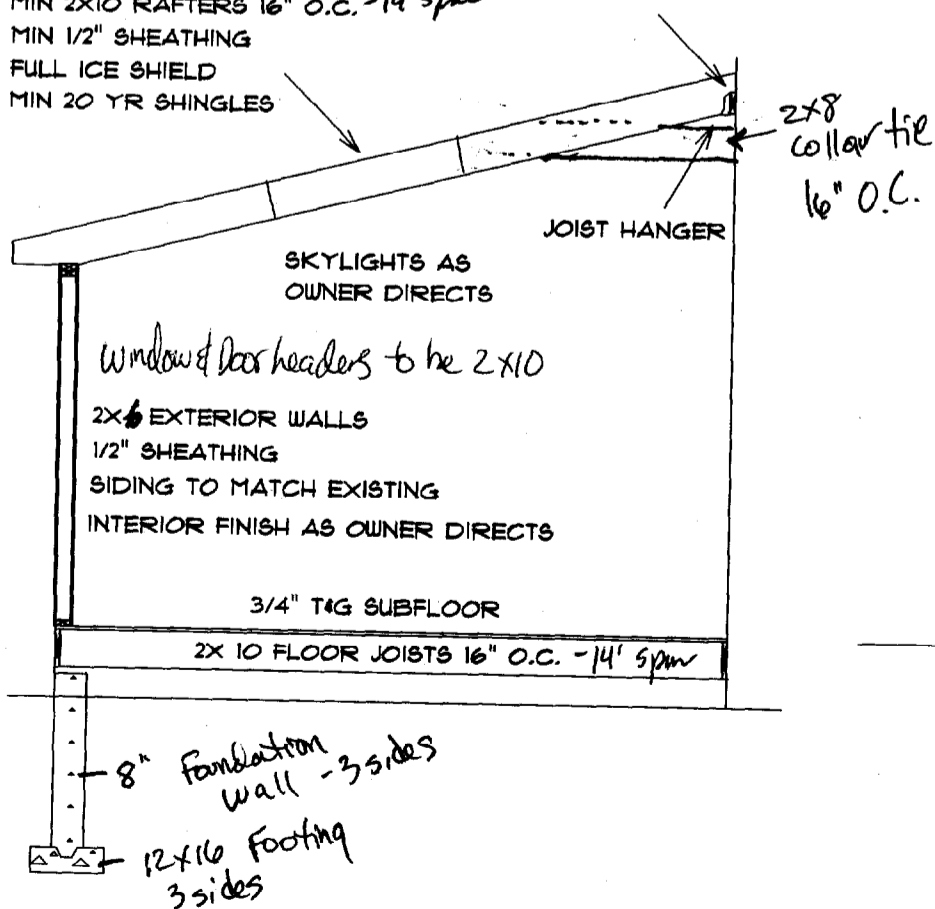 MIN 2X10 RAFTERS 16" O.C. - 14' span
MIN 1/2" SHEATHING
FULL ICE SHIELD
MIN 20 YR SHINGLES
2x8
collar tie
16" O.C.
JOIST HANGER
SKYLIGHTS AS
OWNER DIRECTS
Window & Door headers to be 2x10
2X6 EXTERIOR WALLS
1/2" SHEATHING
SIDING TO MATCH EXISTING
INTERIOR FINISH AS OWNER DIRECTS
3/4" T&G SUBFLOOR
2X 10 FLOOR JOISTS 16" O.C. - 14' span
8" Foundation
wall - 3 sides
12x16 Footing
3 sides